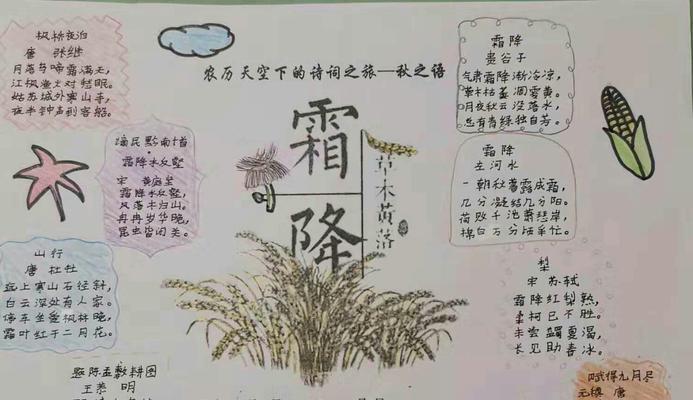 农历天空下的诗词之旅—秋之语
霜降
草木黄落
枫桥夜泊
唐 张继
月落乌啼霜满天,
江枫渔火对愁眠。
姑苏城外寒山寺,
夜半钟声到客船。
谪居黔南十首
霜降水反壑
宋 黄庭坚
霜降水反壑,
风落木归山。
冉冉岁华晚,
昆虫皆闭关。
山行
唐 杜牧
远上寒山石径斜,
白云深处有人家。
停车坐爱枫林晚,
霜叶红于二月花。
题陈孟敷耕图
王恭 明
霜降
贵谷子
气肃霜降渐冷凉,
草木枯萎凋零黄。
月夜秋云没落水,
总有青绿独自芳。
霜降
左河水
一朝秋暮露成霜,
几分凝结几分阳。
荷败千池萧瑟岸,
棉白万分活采忙。
梨
宋 苏轼
霜降红梨熟,
柔柯已不胜。
未尝蠲夏渴,
长见助春冰。
赋得九月尽
元稹 唐